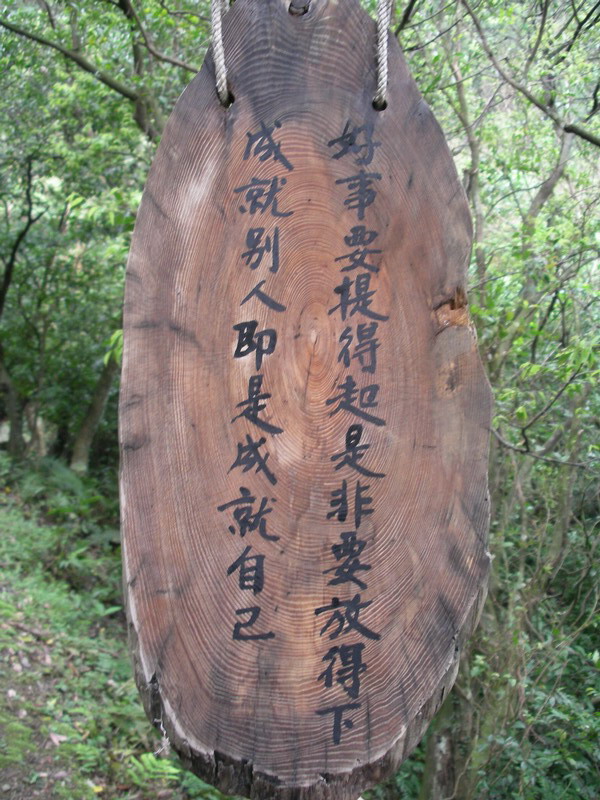 好事要提得起是非要放得下
成就别人即是成就自己